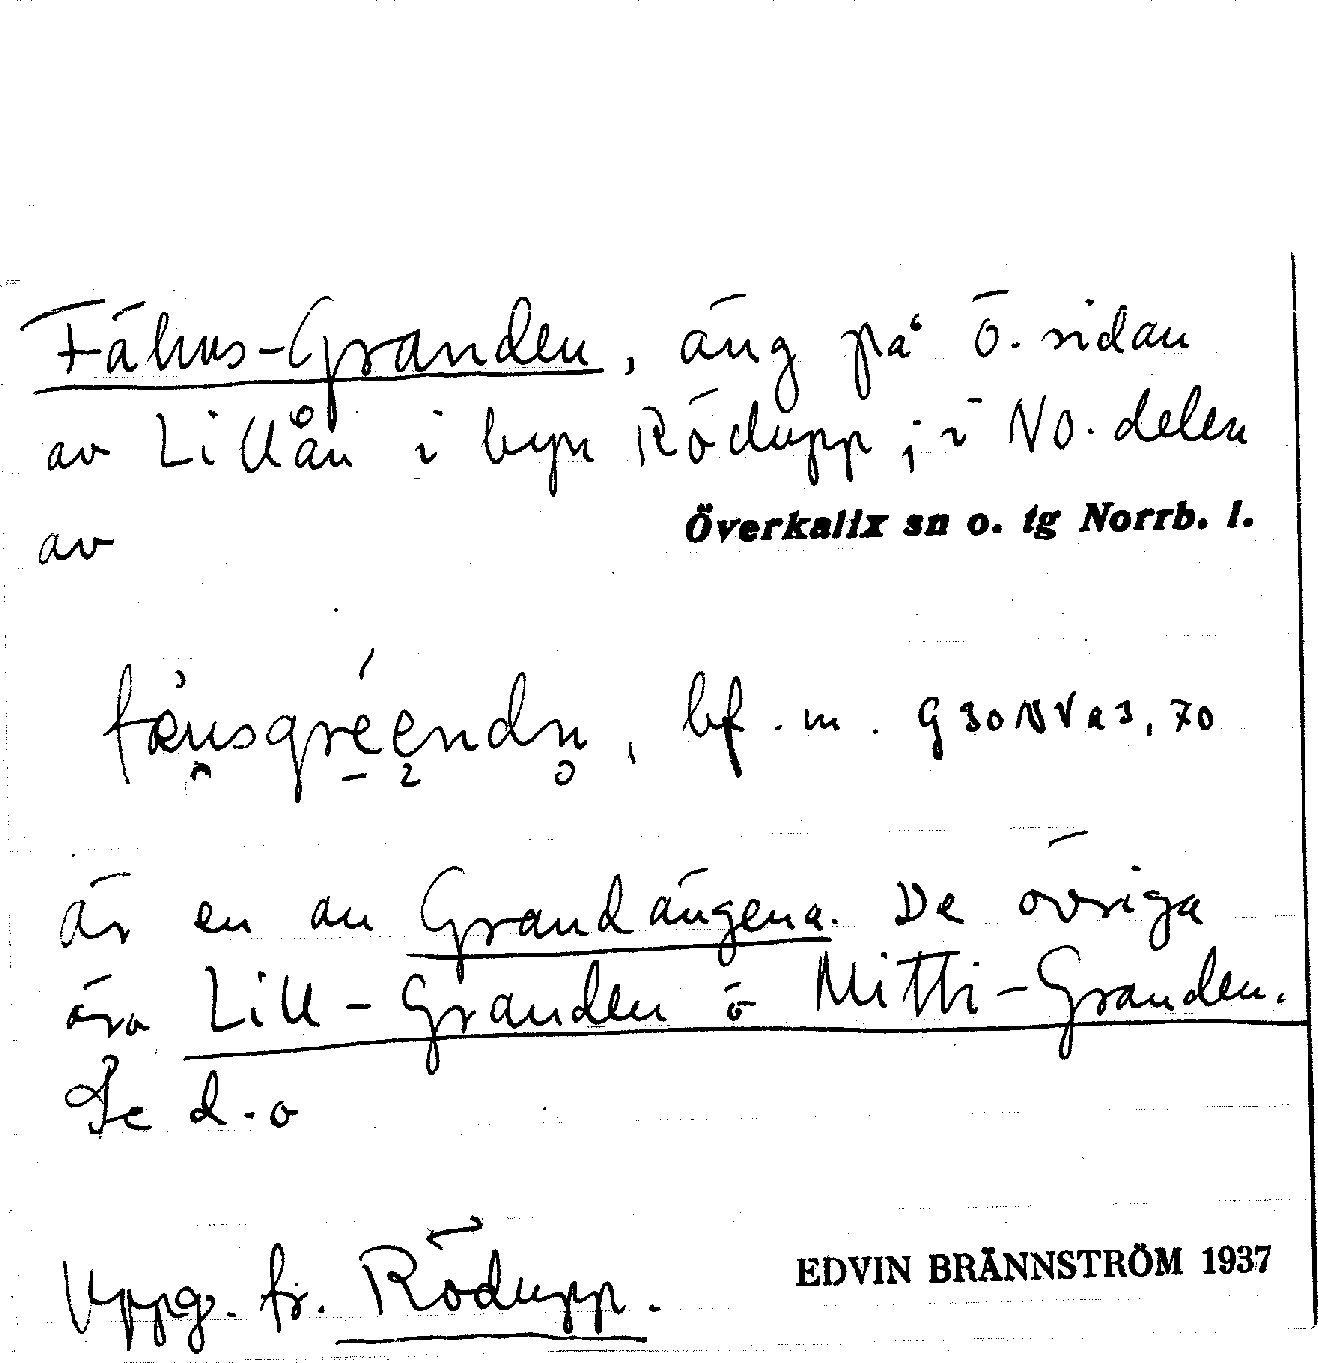 Fähus-Granden, äng på ö. sidan
av Lillån i byn Rödupp; i NO. delen
av Överkalix sn o. tg Norrb. l.
bf. m. G30NVa3,70
är en av Grandängena. De övriga
äro Lill-Granden o Mitti-Granden.
Se d.o
Uppg. fr. Rödupp.
EDVIN BRÄNNSTRÖM 1937